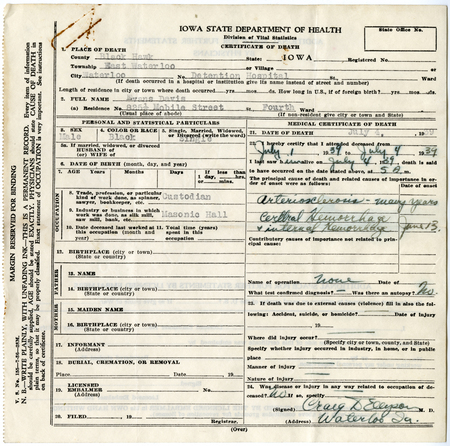 IOWA STATE DEPARTMENT OF HEALTH
State Office No.
Division of Vital Statistics
CERTIFICATE OF DEATH
1. PLACE OF DEATH
County Black Hawk State: IOWA Registered No.
Township East Waterloo or Village
City Waterloo No. Detention Hospital St. Ward
(If death occurred in a hospital or institution give its name instead of street and number)
Length of residence in city or town where death occurred yrs. mos. ds. How long in U. S., if of foreign birth? yrs. mos. ds.
2. FULL NAME Davis
(a) Residence No. Mobile Street St. Fourth Ward
(Usual place of abode) (If non-resident give city or town and State)
PERSONAL AND STATISTICAL PARTICULARS
MEDICAL CERTIFICATE OF DEATH
3. SEX Male
4. COLOR OR RACE Black
5. Single, Married, Widowed, or Divorced (write the word)
21. DATE OF DEATH July 4, 19
5a. If married, widowed, or divorced
HUSBAND of
(or) WIFE of
22. I hereby certify that I attended deceased from
July 1 39, to July 4 1939
I last saw alive on July 4, 39, death is said
6. DATE OF BIRTH (month, day, and year)
to have occurred on the date stated above, at 5 m.
7. AGE Years Months Days If less than
The principal cause of death and related causes of importance in order of onset were as follows:
Date of onset
OCCUPATION
8. Trade, profession, or particular kind of work done, as spinner, sawyer, bookkeeper, etc. Custodian
Arteriosclerosis - many years
9. Industry or business in which work was done, as silk mill, saw mill, bank, etc. Masonic Hall
Cerebral Hemorrhage
& internal Hemorrhage June 13.
10. Date deceased last worked at this occupation (month and year)
11. Total time (years) spent in this occupation
Contributory causes of importance not related to principal cause:
12. BIRTHPLACE (city or town)
(State or country)
FATHER
13. NAME
14. BIRTHPLACE (city or town)
(State or country)
Name of operation None Date of
What test confirmed diagnosis? Was there an autopsy? No
MOTHER
15. MAIDEN NAME
23. If death was due to external causes (violence) fill in also the following:
Accident, suicide, or homicide? Date of injury 19
16. BIRTHPLACE (city or town)
(State or country)
Where did injury occur?
(Specify city or town, county, and State)
17. INFORMANT
(Address)
Specify whether injury occurred in industry, in home, or in public place
Manner of injury
18. BURIAL, CREMATION, OR REMOVAL
Nature of injury
Place Date 19
24. Was disease or injury in any way related to occupation of deceased? No If so, specify
19. LICENSED EMBALMER
(Address)
(Signed) Craig D. Ellyson M. D.
20. FILED 19 Registrar.
(Address) Waterloo Ia.
(Over)
MARGIN RESERVED FOR BINDING
N. B.—WRITE PLAINLY, WITH UNFADING INK—THIS IS A PERMANENT RECORD. Every item of information should be carefully supplied. AGE should be stated EXACTLY. PHYSICIANS should state CAUSE OF DEATH in plain terms, so that it may be properly classified. Exact statement of OCCUPATION is very important. See instructions on back of certificate.